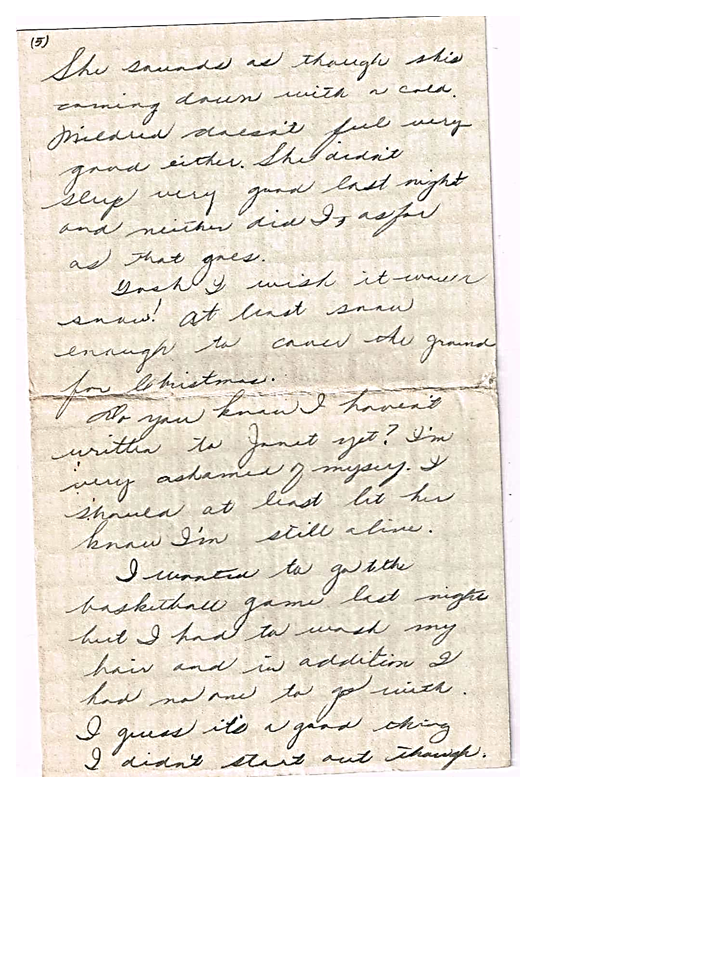 (5)
She sounds as though she's
coming down with a cold.
Mildred doesn't feel very
good either. She didn't
sleep very good last night
and neither did I, as far
as that goes.
Gosh I wish it would
snow! At least snow
enough to cover the ground
for Christmas.
Do you know I haven't
written to Janet yet? I'm
very ashamed of myself. I
should at least let her
know I'm still alive.
I wanted to go to the
basketball game last night
but I had to wash my
hair and in addition I
had no one to go with.
I guess it's a good thing
I didn't start out though.